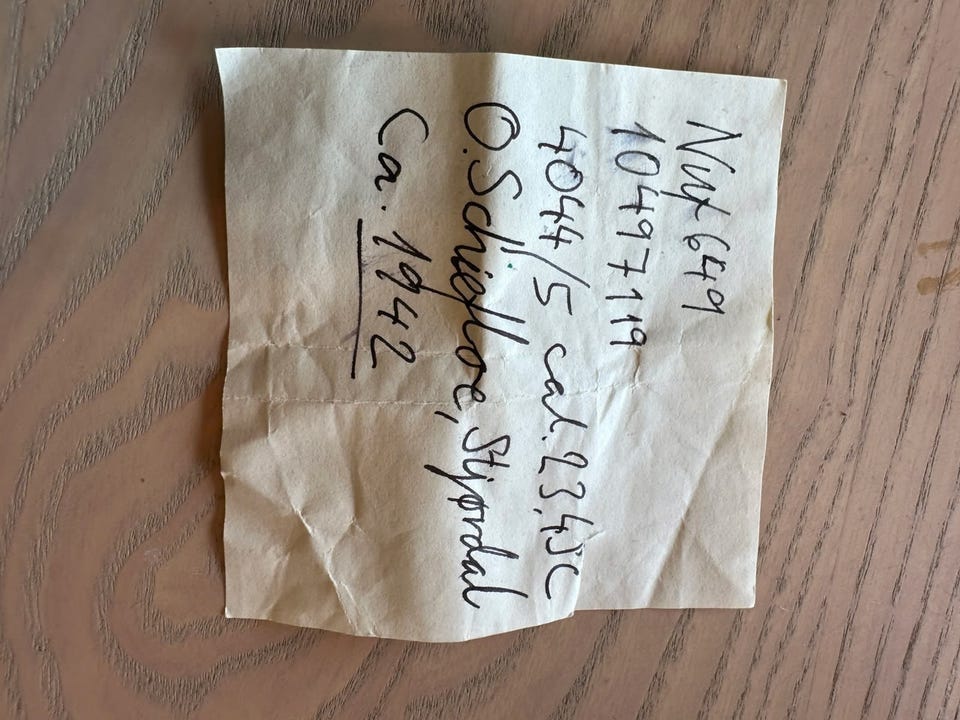 Nut 649
10497119
4044/5 cal. 23,4SC
O. Schiefloe, Stjørdal
Ca. 1942